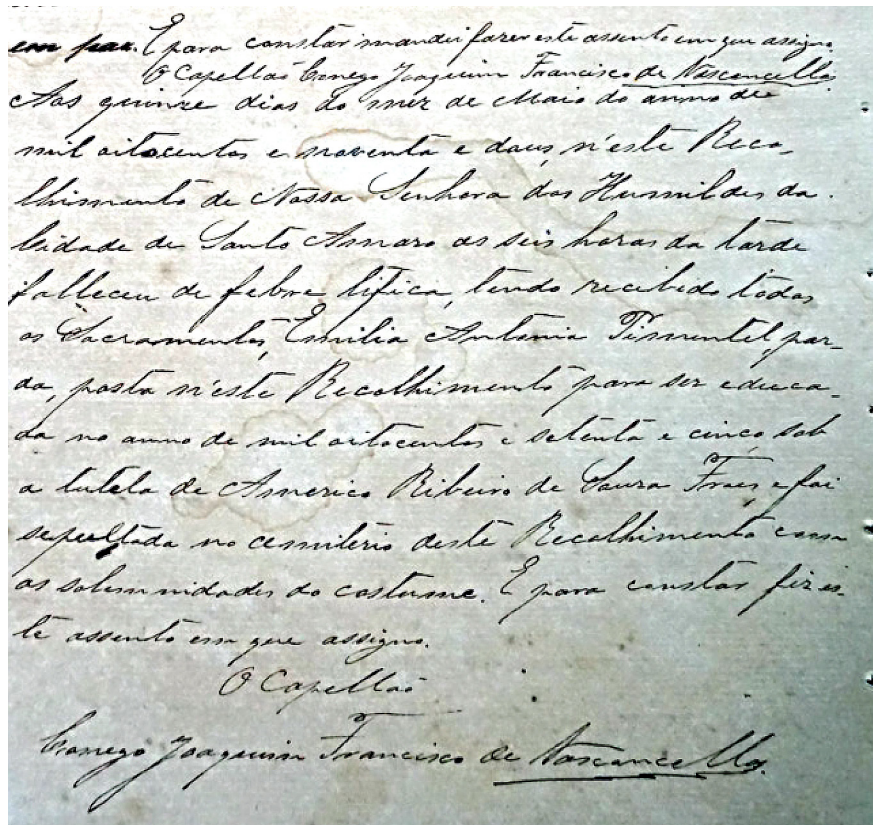 em paz. E para constar mandei fazer este assento em que assigno.
O Capellaõ Conego Joaquim Francisco de Vasconcellos
Aos quinze dias do mez de Maio do anno de
mil oitocentos e noventa e dous, n'este Reco-
lhimento de Nossa Senhora dos Humildes da
Cidade de Santo Amaro as seis horas da tarde
falleceu de febre tifica, tendo recebido todos
os Sacramentos, Emilia Antonia Pimentel, par-
da, posta n'este Recolhimento para ser educa-
da no anno de mil oitocentos e setenta e cinco sob
a tutela de Americo Ribeiro de Souza Fraes e foi
sepultada no cemiterio deste Recolhimento com
as solemnidades do costume. E para constar fiz es-
te assento em que assigno.
O Capellaõ
Conego Joaquim Francisco de Vasconcellos.